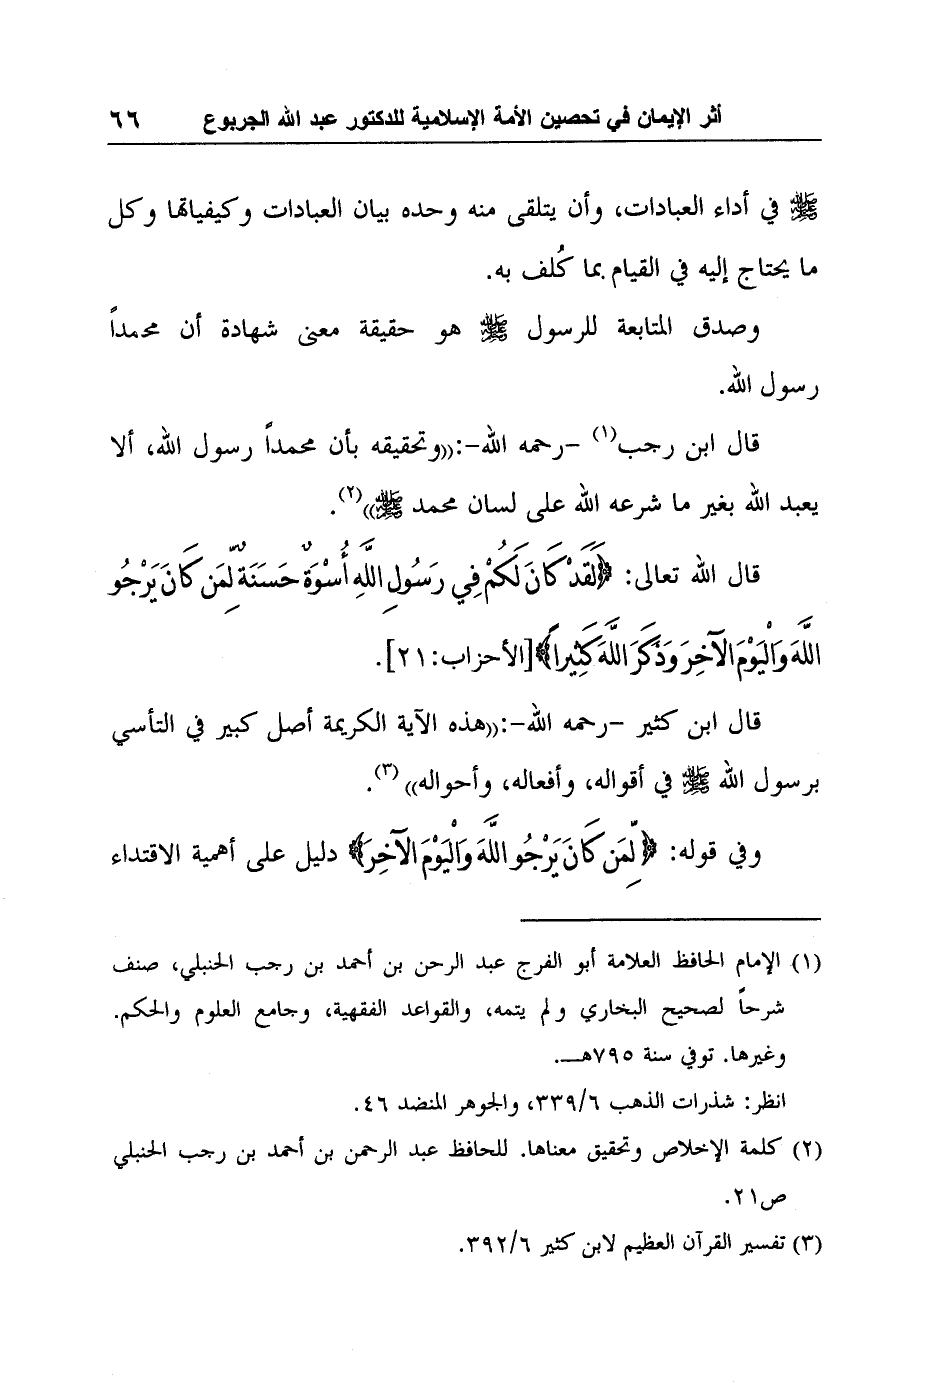 أثر الإيمان في تحصين الأمة الإسلامية للدكتور عبد الله الجربوع ٦٦
ﷺ في أداء العبادات، وأن يتلقى منه وحده بيان العبادات وكيفياتها وكل
ما يحتاج إليه في القيام بما كُلف به.
وصدق المتابعة للرسول ﷺ هو حقيقة معنى شهادة أن محمداً
رسول الله.
قال ابن رجب(١) –رحمه الله–:((وتحقيقه بأن محمداً رسول الله، ألا
يعبد الله بغير ما شرعه الله على لسان محمد ﷺ))(٢).
قال الله تعالى: ﴿لَقَدْ كَانَ لَكُمْ فِي رَسُولِ اللَّهِ أُسْوَةٌ حَسَنَةٌ لِّمَن كَانَ يَرْجُو
اللَّهَ وَالْيَوْمَ الْآخِرَ وَذَكَرَ اللَّهَ كَثِيراً﴾[الأحزاب:٢١].
قال ابن كثير –رحمه الله–:((هذه الآية الكريمة أصل كبير في التأسي
برسول الله ﷺ في أقواله، وأفعاله، وأحواله))(٣).
وفي قوله: ﴿لِّمَن كَانَ يَرْجُو اللَّهَ وَالْيَوْمَ الْآخِرَ﴾ دليل على أهمية الاقتداء
(١) الإمام الحافظ العلامة أبو الفرج عبد الرحن بن أحمد بن رجب الحنبلي، صنف
شرحاً لصحيح البخاري ولم يتمه، والقواعد الفقهية، وجامع العلوم والحكم.
وغيرها. توفي سنة ٧٩٥هـ.
انظر: شذرات الذهب ٣٣٩/٦، والجوهر المنضد ٤٦.
(٢) كلمة الإخلاص وتحقيق معناها. للحافظ عبد الرحمن بن أحمد بن رجب الحنبلي
ص٢١.
(٣) تفسير القرآن العظيم لابن كثير ٣٩٢/٦.